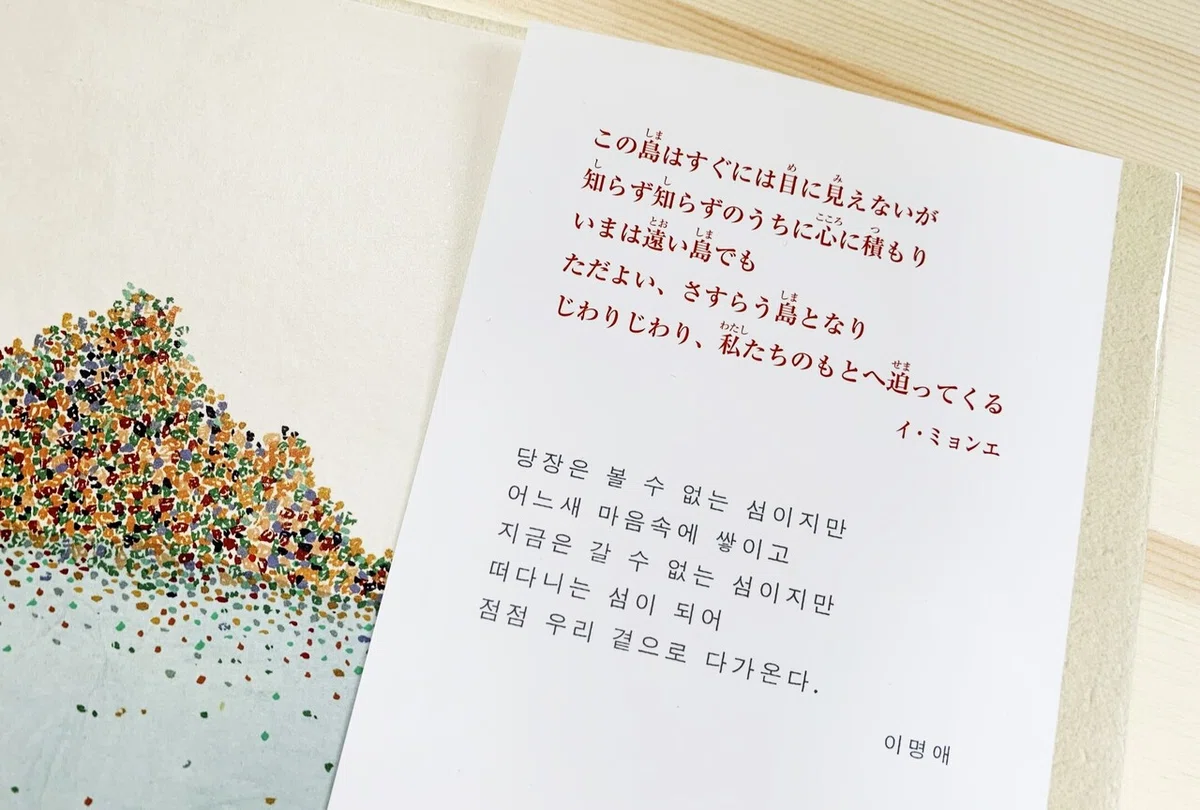 この島はすぐには目に見えないが
知らず知らずのうちに心に積もり
いまは遠い島でも
ただよい、さすらう島となり
じわりじわり、私たちのもとへ迫ってくる
イ・ミョンエ
당장은 볼 수 없는 섬이지만
어느새 마음속에 쌓이고
지금은 갈 수 없는 섬이지만
떠다니는 섬이 되어
점점 우리 곁으로 다가온다.
이명애